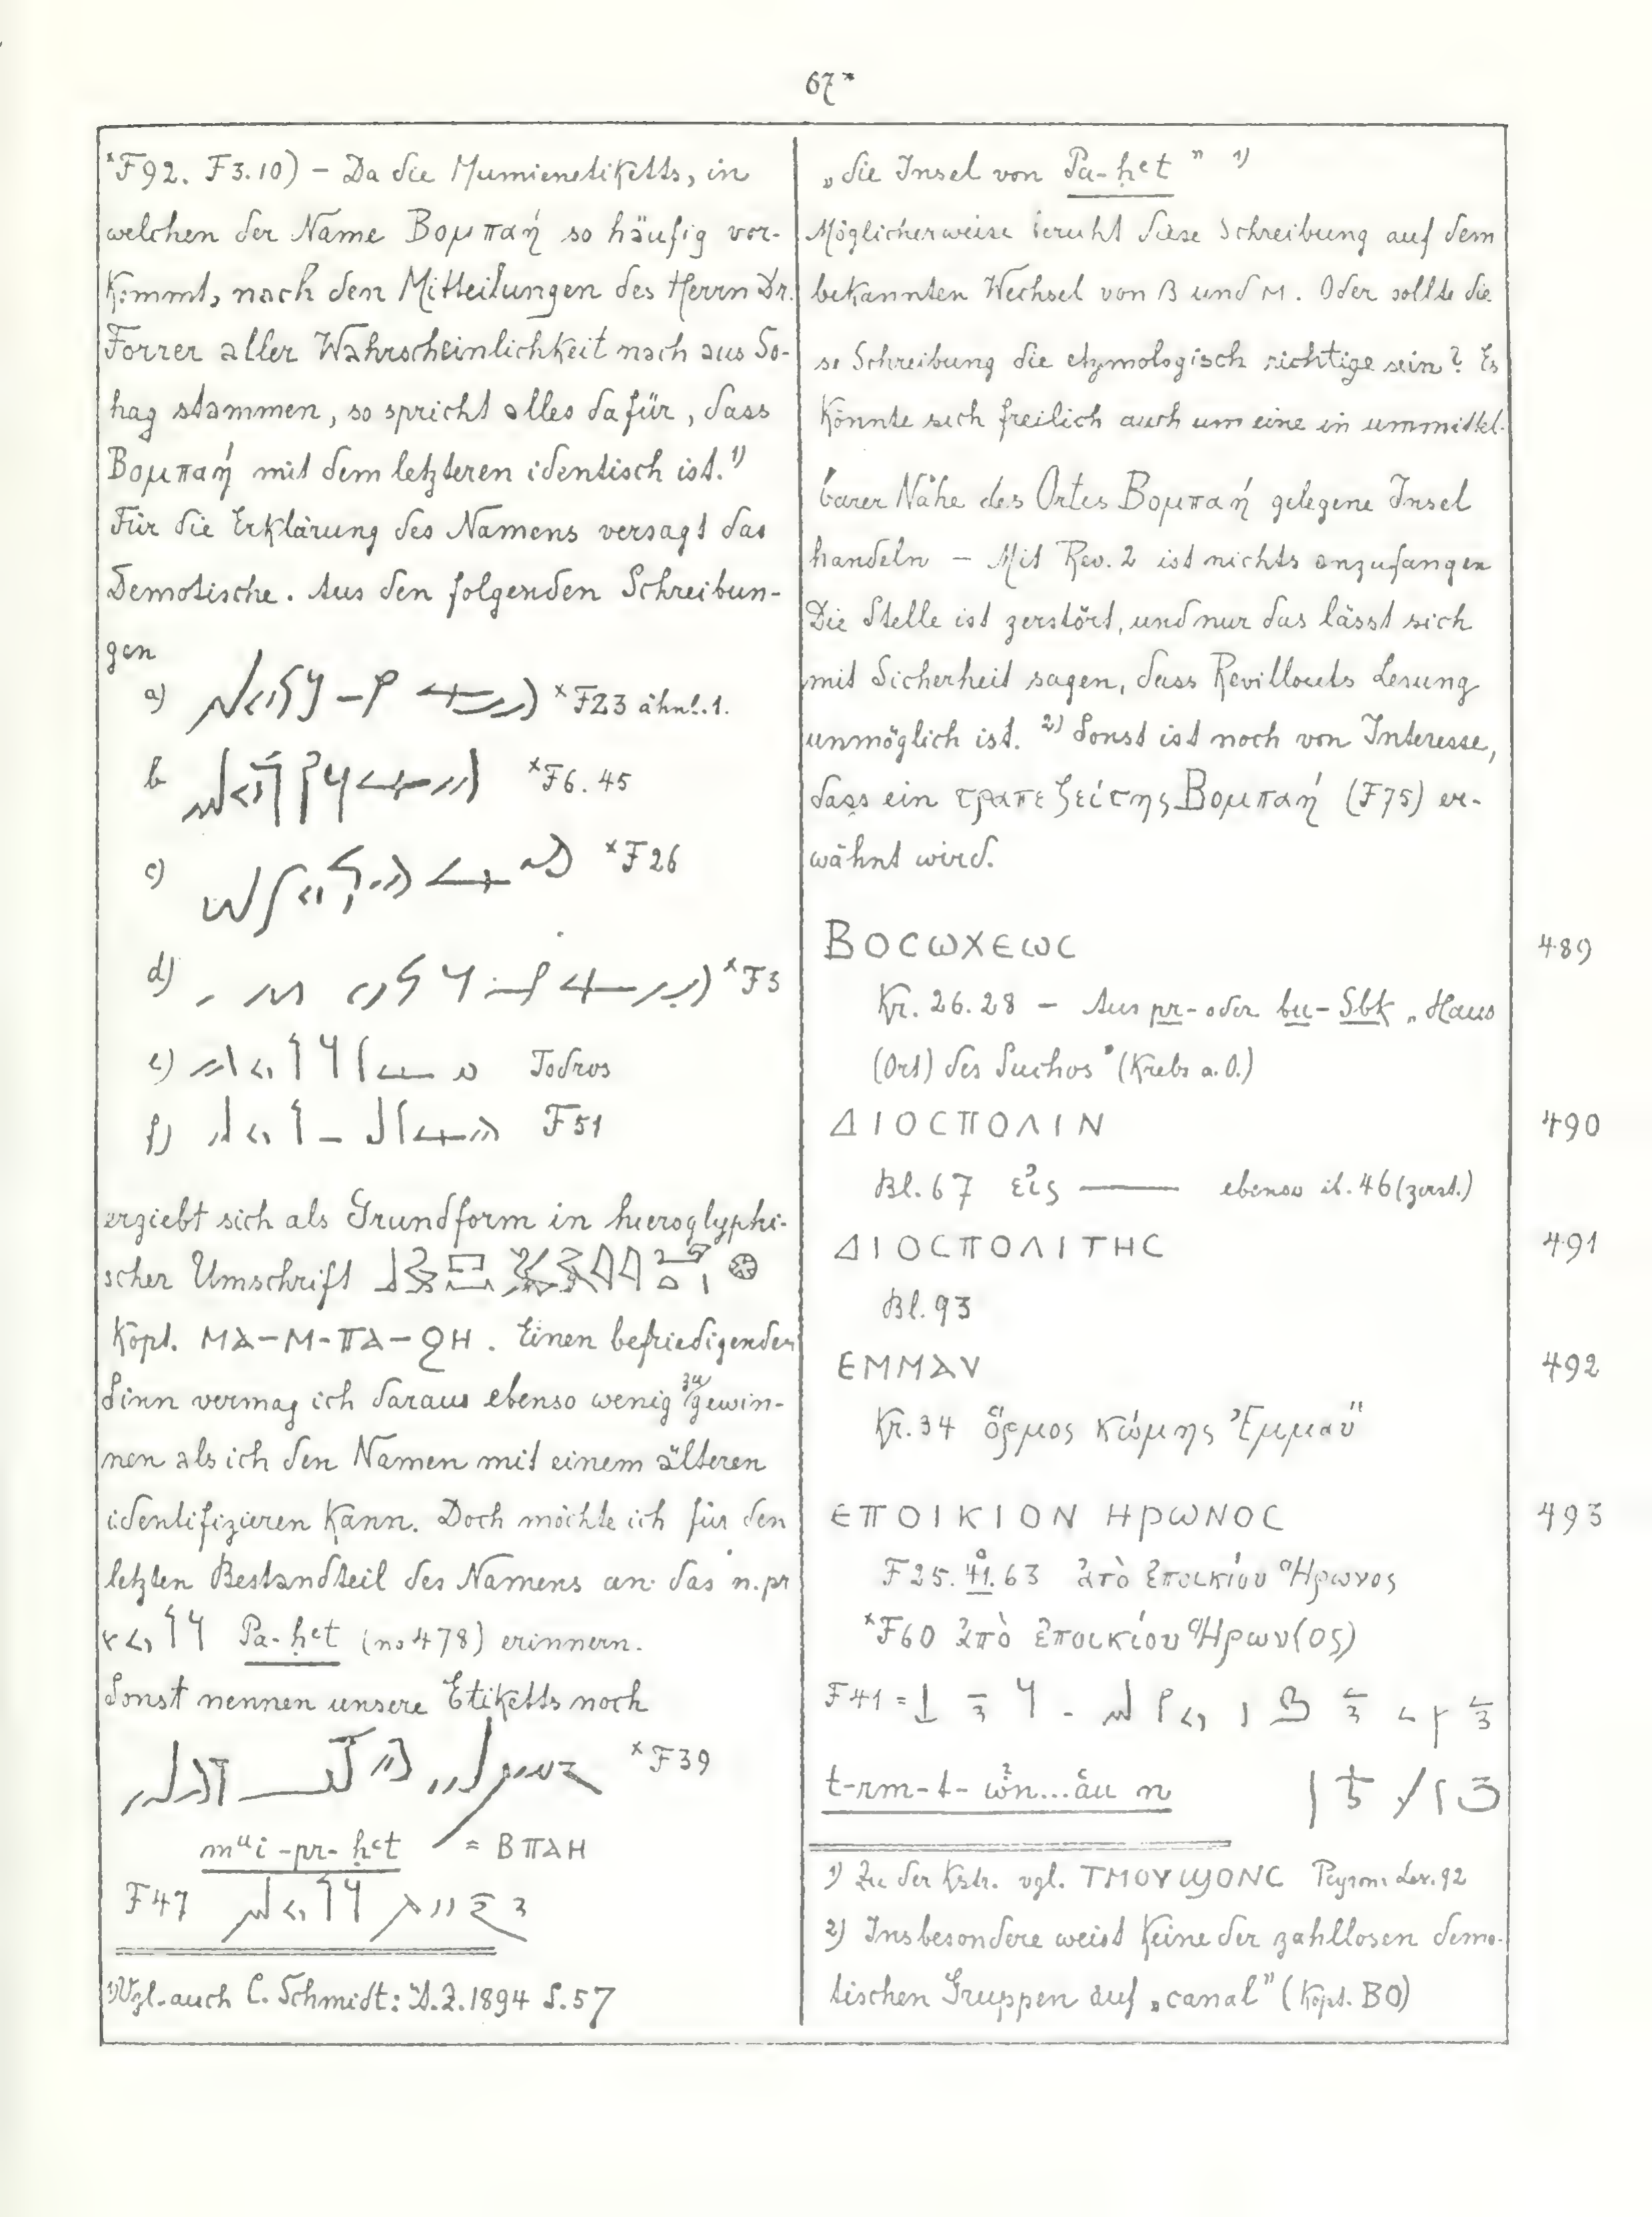 67*
*F92. F3.10) – Da die Mumienetiketts, in
welchen der Name Βομπαή so häufig vor-
kommt, nach den Mitteilungen des Herrn Dr.
Forrer aller Wahrscheinlichkeit nach aus So-
hag stammen, so spricht alles dafür, dass
Βομπαή mit dem letzteren identisch ist.¹⁾
Für die Erklärung des Namens versagt das
Demotische. Aus den folgenden Schreibun-
gen
a) *F23 ähnl. 1.
b *F6. 45
c) *F26
d) *F3
e) Todros
f) F51
ergiebt sich als Grundform in hieroglyphi-
scher Umschrift
Kopt. ⲙⲁ–ⲙ-ⲡⲁ–ϩⲏ. Einen befriedigenden
Sinn vermag ich daraus ebenso wenig zu gewin-
nen als ich den Namen mit einem älteren
identifizieren kann. Doch möchte ich für den
letzten Bestandteil des Namens an das n.pr
Pa-ḥet (no 478) erinnern.
Sonst nennen unsere Etiketts noch
*F39
mᵘi-pr-ḥet = ΒΠΑΗ
F47
¹⁾Vgl. auch C. Schmidt: Ä.Z. 1894 S. 57
„die Insel von Pa-ḥet" ¹⁾
Möglicherweise beruht diese Schreibung auf dem
bekannten Wechsel von ⲃ und ⲙ. Oder sollte die
se Schreibung die etymologisch richtige sein? Es
könnte sich freilich auch um eine in unmittel-
barer Nähe des Ortes Βομπαή gelegene Insel
handeln – Mit Rev. 2 ist nichts anzufangen
Die Stelle ist zerstört, und nur das lässt sich
mit Sicherheit sagen, dass Revillouts Lesung
unmöglich ist. ²⁾ Sonst ist noch von Interesse,
dass ein τραπεζείτης Βομπαή (F75) er-
wähnt wird.
ΒΟϹΩΧΕΩϹ 489
Kr. 26.28 – Aus pr- oder bu-Sbk „Haus
(Ort) des Suchos" (Krebs a.O.)
ΔΙΟϹΠΟΛΙΝ 490
Bl. 67 εἰς —— ebenso ib. 46 (zerst.)
ΔΙΟϹΠΟΛΙΤΗϹ 491
Bl. 93
ΕΜΜΑΥ 492
Kr. 34 ὅρμος κώμης Ἐμμαῢ
ΕΠΟΙΚΙΟΝ ΗΡΩΝΟϹ 493
F25. 41. 63 ἀπὸ ἐποικίου Ἥρωνος
*F60 ἀπὸ ἐποικίου Ἥρων(ος)
F41 =
t-rm-t- ... n
1) Zu der Kstr. vgl. ⲧⲙⲟⲩϣⲟⲛⲥ Peyron: Lex. 92
2) Insbesondere weist keine der zahllosen demo-
tischen Gruppen auf „canal" (Kopt. ⲃⲟ)